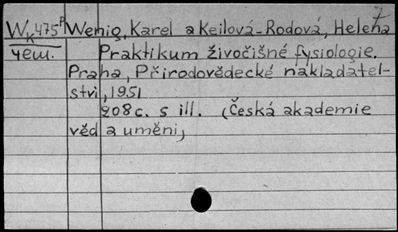 7
WK475P Wenig, Karel a Keilová-Rodová, Helena
4ем. Praktikum živočišné fysiologie.
Praha, Přírodovědecké nakladatel-
ství, 1951
208c. s ill. (Česká akademie
věd a uměni,